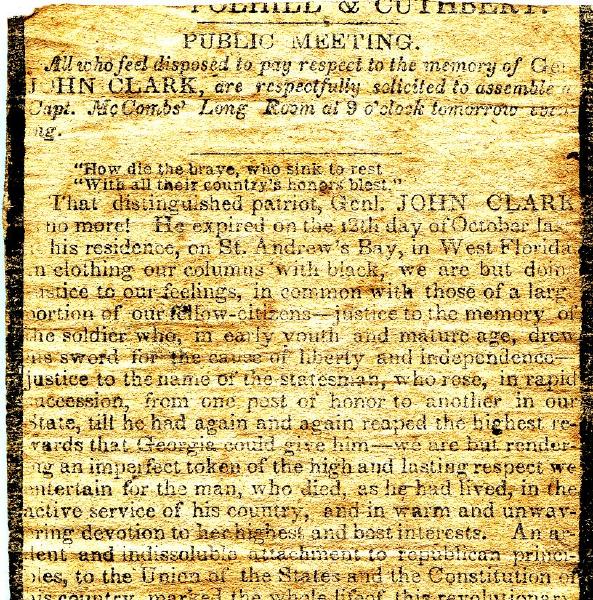 POLHILL & CUTHBERT.
PUBLIC MEETING.
All who feel disposed to pay respect to the memory of Ge
JOHN CLARK, are respectfully solicited to assemble a
Capt. McCombs' Long Room at 9 o'clock tomorrow
ng.
"How die the brave, who sink to rest
"With all their country's honors blest."
That distinguished patriot, Genl. JOHN CLARK
no more! He expired on the 12th day of October las
his residence, on St. Andrew's Bay, in West Florida
n clothing our columns with black, we are but doin
ustice to our feelings, in common with those of a larg
portion of our fellow-citizens—justice to the memory of
he soldier who, in early youth and mature age, drew
his sword for the cause of liberty and independence—
justice to the name of the statesman, who rose, in rapid
uccession, from one post of honor to another in our
State, till he had again and again reaped the highest re-
wards that Georgia could give him—we are but render-
ng an imperfect token of the high and lasting respect we
entertain for the man, who died, as he had lived, in the
active service of his country, and in warm and unwav-
ring devotion to her highest and best interests. An ar-
dent and indissoluble attachment to republican princi-
ples, to the Union of the States and the Constitution of
his country, marked the whole life of this revolutionary